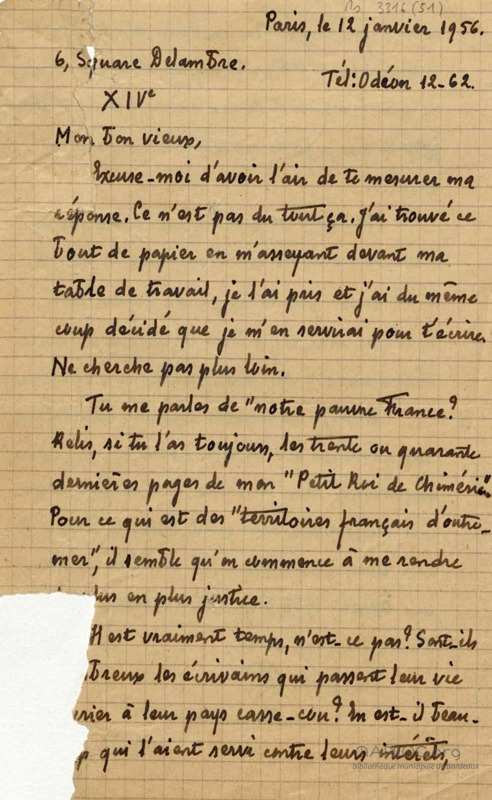 Ms 3316 (51)
Paris, le 12 janvier 1956.
6, Square Delambre.
Tél: Odéon 12-62.
XIVe
Mon bon vieux,
Excuse-moi d'avoir l'air de te mesurer ma
réponse. Ce n'est pas du tout ça. J'ai trouvé ce
bout de papier en m'asseyant devant ma
table de travail, je l'ai pris et j'ai du même
coup décidé que je m'en servirai pour t'écrire.
Ne cherche pas plus loin.
Tu me parles de "notre pauvre France?
Relis, si tu l'as toujours, les trente ou quarante
dernières pages de mon "Petit Roi de Chimérie"
Pour ce qui est des "territoires français d'outre-
mer", il semble qu'on commence à me rendre
plus en plus justice.
Il est vraiment temps, n'est-ce pas? Sont-ils
breux les écrivains qui passent leur vie
crier à leur pays casse-cou? En est-il beau-
p qui l'aient servi contre leurs intérêts,
bibliothèque municipale de bordeaux